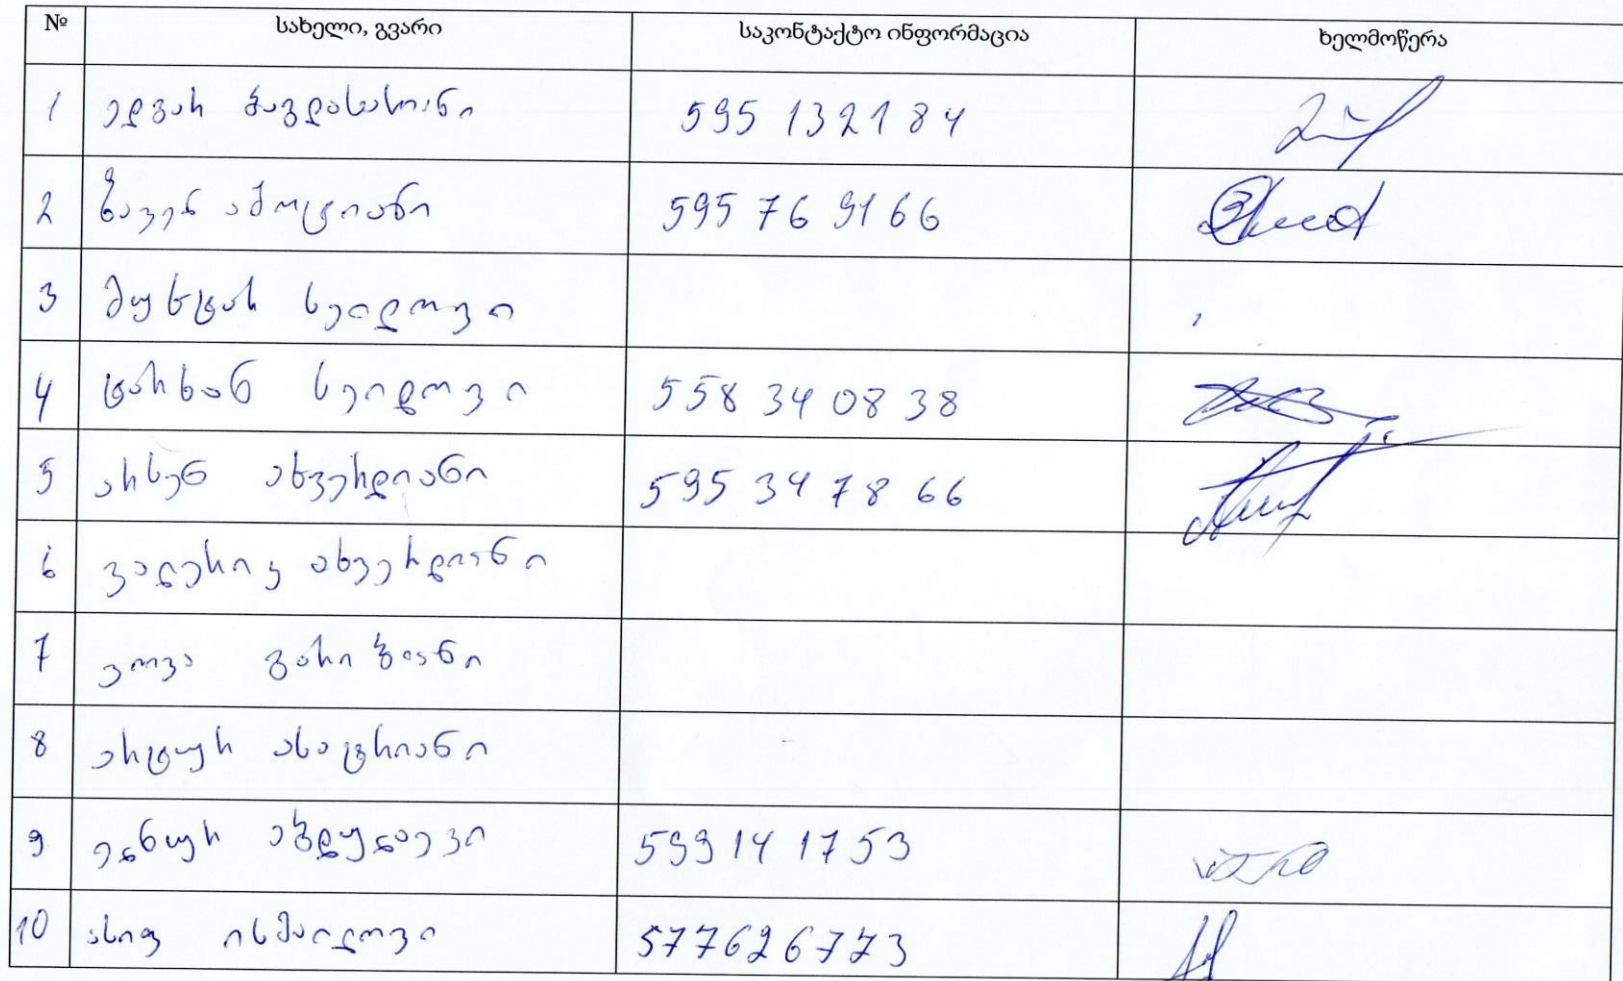 № სახელი, გვარი საკონტაქტო ინფორმაცია ხელმოწერა
1 ედგარ ბაგდასარიანი 595 132184
2 ზავენ ამოტიანი 595 76 9166
3 მუხტარ სეიდოვი
4 ტარხან სეიდოვი 558 34 08 38
5 არსენ ახვერდიანი 595 34 78 66
6 ვალერიკ ახვერდიანი
7 ვოვა
8 არტურ ასატრიანი
9 593 14 17 53
10 ასიფ ისმაილოვი 577626773